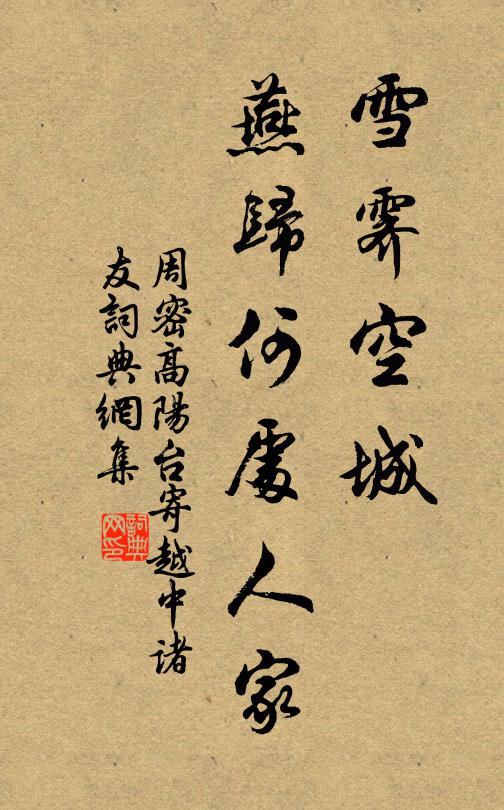 雪霽空城
燕歸何處人家
周密高陽台寄越中諸
友詞典網集
詞典
网印